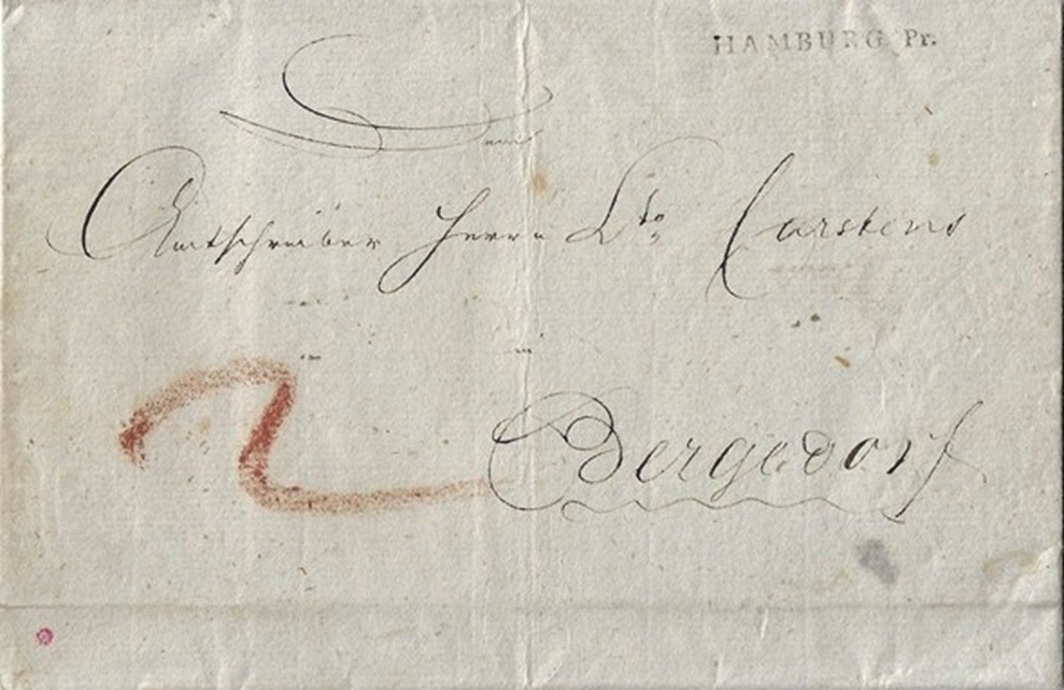 HAMBURG Pr.
Dem
Amtschreiber Herrn Lto Carstens
in
2
Bergedorf